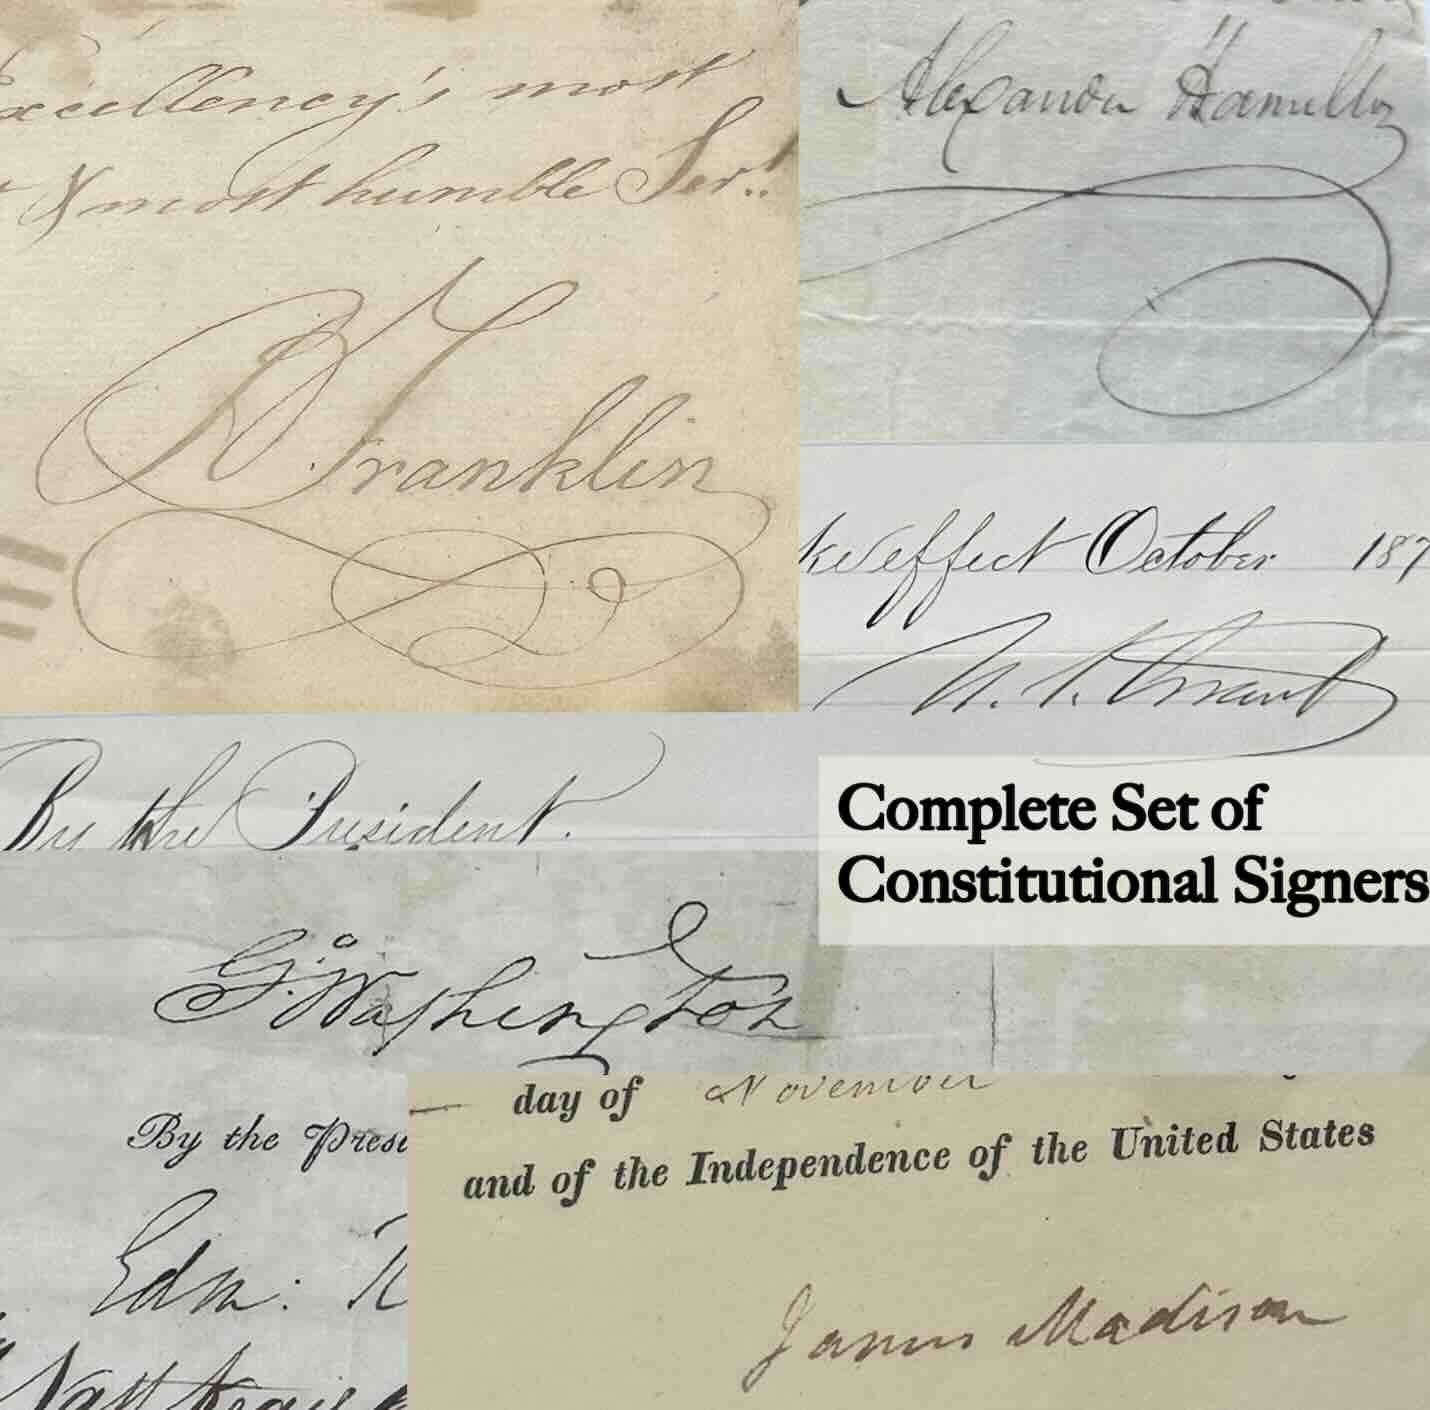 Excellency's most
& most humble Ser.t
B Franklin
Alexander Hamilton
effect October 187
U. S. Grant
By the President.
Complete Set of
Constitutional Signers
G:Washington
day of November
and of the Independence of the United States
By the Presi
Edm: R
James Madison